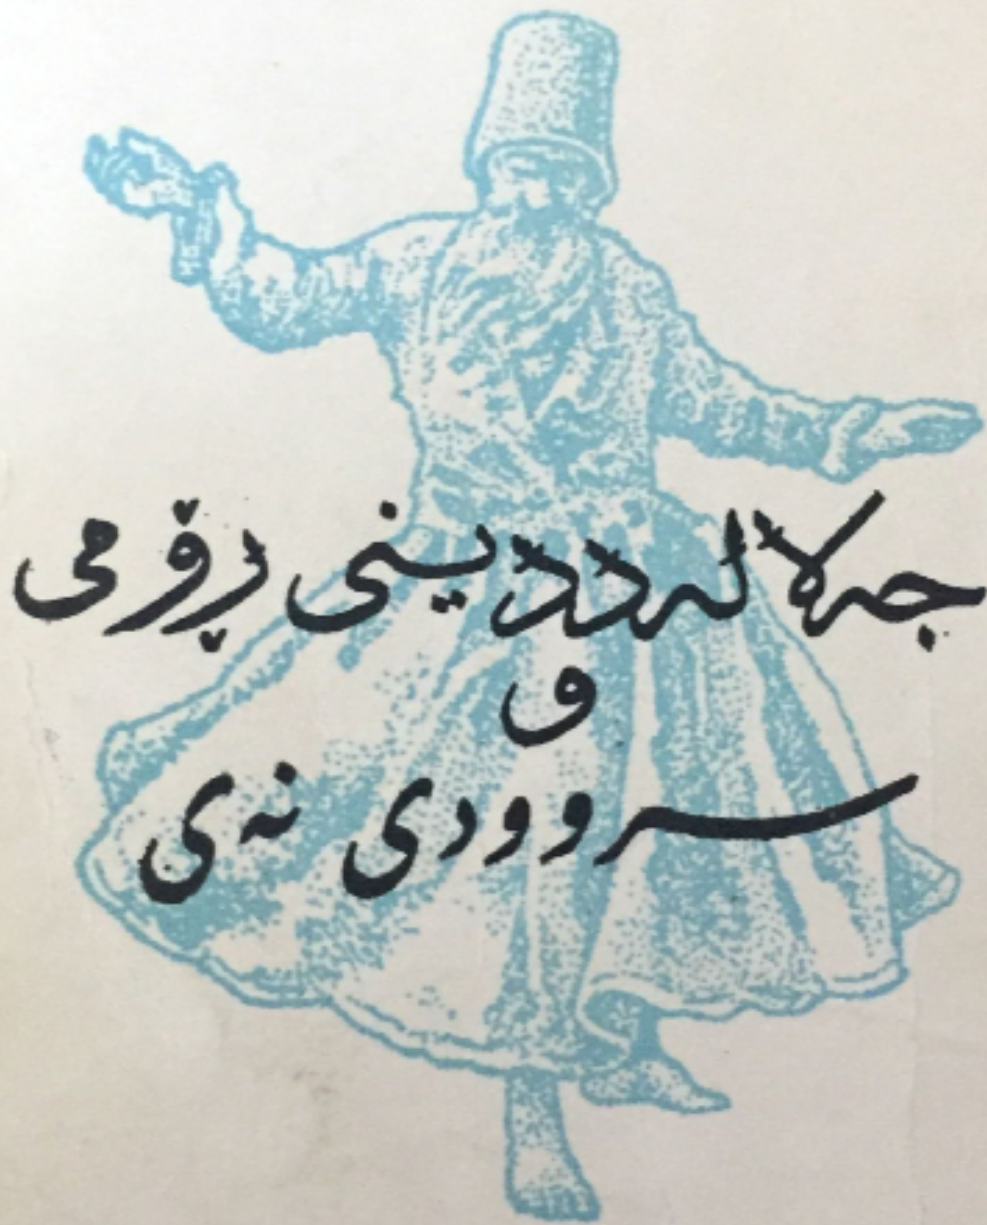 جەلالەددینی ڕۆمی
و
سروودی نەی